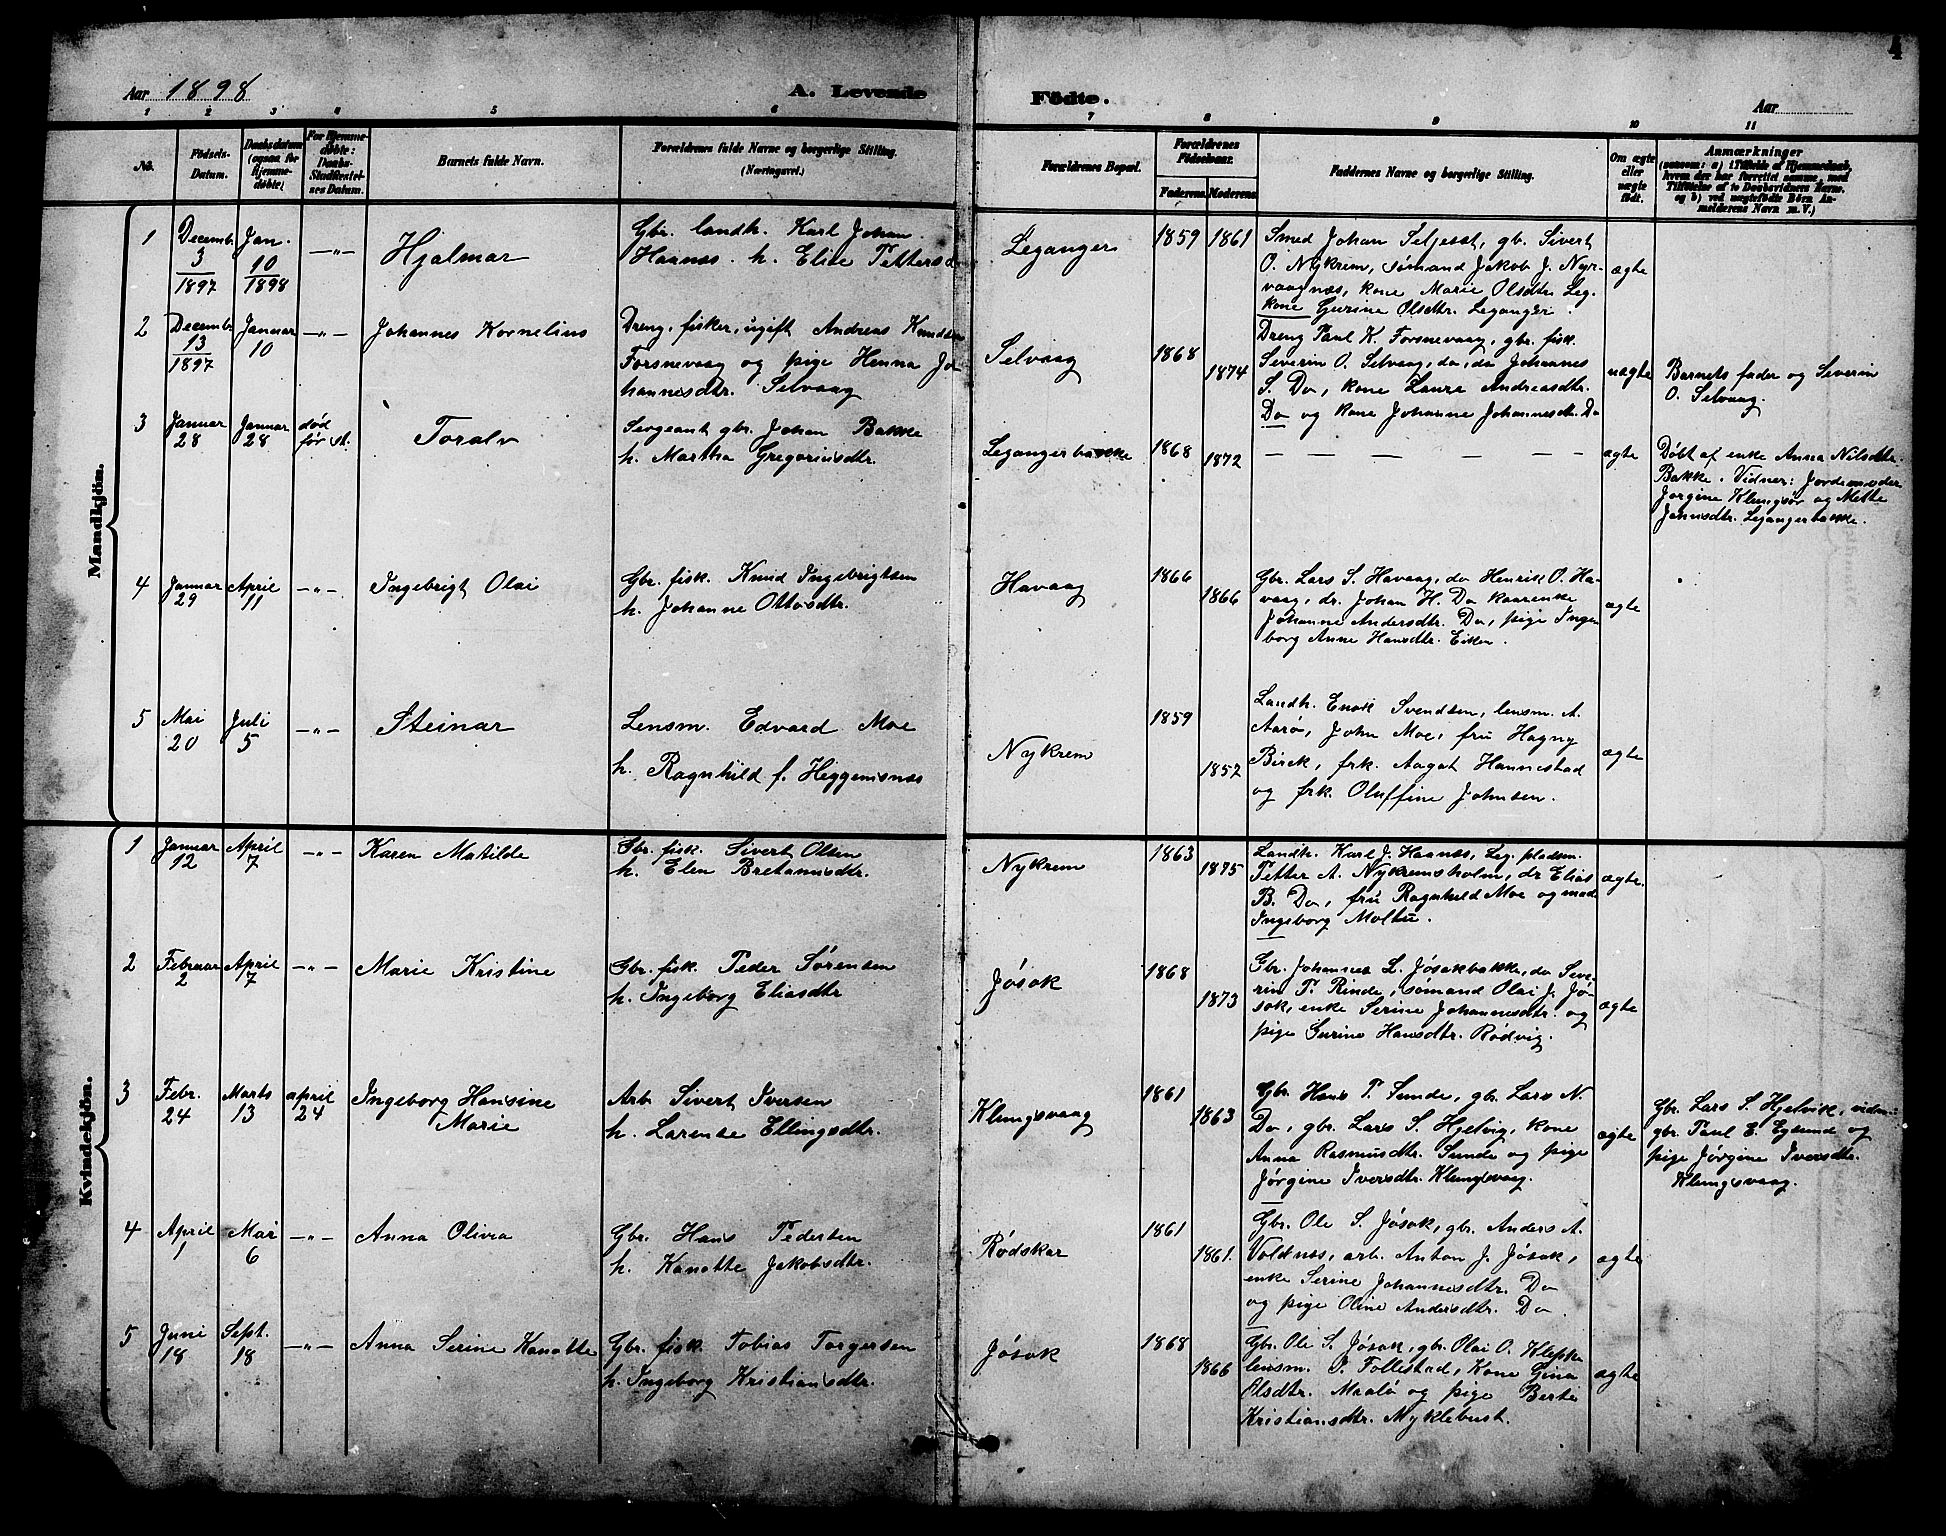 4
Aar 1898 A. Levende Födte. Aar
1 2 3 4 5 6 7 8 9 10 11
No.
Födsels-
Datum.
Daabsdatum
(ogsaa for
Hjemme-
døbte)
For Hjemme-
døbte:
Daabs-
Stadfæstel-
ses Datum.
Barnets fulde Navn.
Forældrenes fulde Navne og borgerlige Stilling.
(Næringsvei.)
Forældrenes Bopæl.
Forældrenes
Födselsaar.
Faderens Moderens
Faddernes Navne og borgerlige Stilling.
Om ægte
eller
uægte
født.
Anmærkninger
(saasom: a) i Tilfælde af Hjemmedaab,
hvem der har forrettet samme, med
Tilføielse af to Daabsvidners Navne.
og b) ved uægtefødte Børn An-
melderens Navn m.V.)
Mandkjön.
1
Decemb.
3
1897
Jan.
10
1898
—"—
Hjalmar
Gbr. landh. Karl Johan
Haanæs. h. Elise Pettersd
Leganger
1859 1861
Smed Johan Seljeset, gb. Sivert
O. Nykrem, sømand Jakob J. Nyr-
vaagnæs, kone Marie Olsdtr. Leg.
kone Gurine Olsdtr. Leganger.
ægte
2
Decemb
13
1897
Januar
10
—"—
Johannes Kornelius
Dreng, fisker, ugift Andreas Knudsen
Forsnevaag og pige Henna Jo-
hannesdtr. Selvaag
Selvaag
1868
1874
Dreng Paul K. Forsnevaag, gbr. fisk.
Severin O. Selvaag, do, do Johannes
S. Do, kone Laura Andreasdtr.
Do og kone Johanne Johannesdt. Do
uægte
Barnets fader og Severin
O. Selvaag.
3
Januar
28
Januar
28
død
før st.
Toralv
Sergeant gbr. Johan Bakke
h. Martha Gregoriusdtr.
Legangerbakke
1868
1872
— — — — — —
ægte
Døbt af enke Anna Nilsdtr.
Bakke. Vidner: Jordemoder
Jørgine Klungsør og Mette
Jonnsdtr. Legangerbakke.
4
Januar
29
April
11
—"—
Ingebrigt Olai
Gbr. fisk. Knud Ingebrigtsen
h. Johanne Ottosdtr.
Havaag
1866
1866
Gbr. Lars S. Havaag, do Henrik O. Ha-
vaag, dr. Johan H. Do kaarenke
Johanne Andersdtr. Do, pige Inge-
borg Anne Hansdtr. Eiken.
ægte
5
Mai
20
Juli
5
—"—
Steinar
Lensm. Edvard Moe
h. Ragnhild f. Heggemsnæs
Nykrem
1859
1852
Landh. Enok Svendsen, lensm. A.
Aarø, John Moe, fru Hagny
Birck, frk. Aagot Hannestad
og frk. Oluffine Johnsen.
ægte
Kvindekjön.
1
Januar
12
April
7
—"—
Karen Matilde
Gbr. fisk. Sivert Olsen
h. Elen Bretanusdtr.
Nykrem
1863
1875
Landh. Karl J. Haanæs, Leg. pladsm.
Petter A. Nykremsholm, dr. Elias
B. Do, fru Ragnhild Moe og mad.
Ingeborg Moltu.
ægte.
2
Februar
2
April
7
—"—
Marie Kristine
Gbr. fisk. Peder Sørensen
h. Ingeborg Eliasdtr
Jøsok
1868
1873
Gbr. Johannes L. Jøsokbakke, do Seve-
rin T. Rinde, sømand Olai J. Jø-
sok, enke Serine Johannesdtr. og
pige Gurine Hansdtr. Rødvig.
ægte
3
Febr.
24
Marts
13
april
24
Ingeborg Hansine
Marie
Arb. Sivert Iversen
h. Larense Ellingsdtr.
Klungsvaag
1861
1863
Gbr. Hans T. Sunde, gbr. Lars N.
Do, gbr. Lars S. Hjelvig, kone
Anna Rasmusdtr. Sunde og pige
Jørgine Iversdtr. Klungsvaag.
ægte
Gbr. Lars S. Hjelvik, vidn:
gbr. Paul E. Egsund og
pige Jørgine Iversdtr.
Klungsvaag.
4
April
1
Mai
6
—"—
Anna Olivia
Gbr. Hans Pedersen
h. Kanutte Jakobsdtr.
Rødskar
1861
1861.
Gbr. Ole S. Jøsok, gbr. Anders A.
Voldnæs, arb. Anton J. Jøsok,
enke Serine Johannesdtr. Do
og pige Oline Andersdtr. Do.
ægte
5
Juni
18
Sept.
18
—"—
Anna Serine Kanutte
Gbr. fisk. Tobias Torgersen
h. Ingeborg Kristiansdtr.
Jøsok
1868
1866
Gbr. Ole S. Jøsok, gbr. Olai O. Kleppe
lensm. P. Follestad, Kone Gina
Olsdtr. Maalø og pige Berte
Kristiansdtr. Myklebust.
ægte